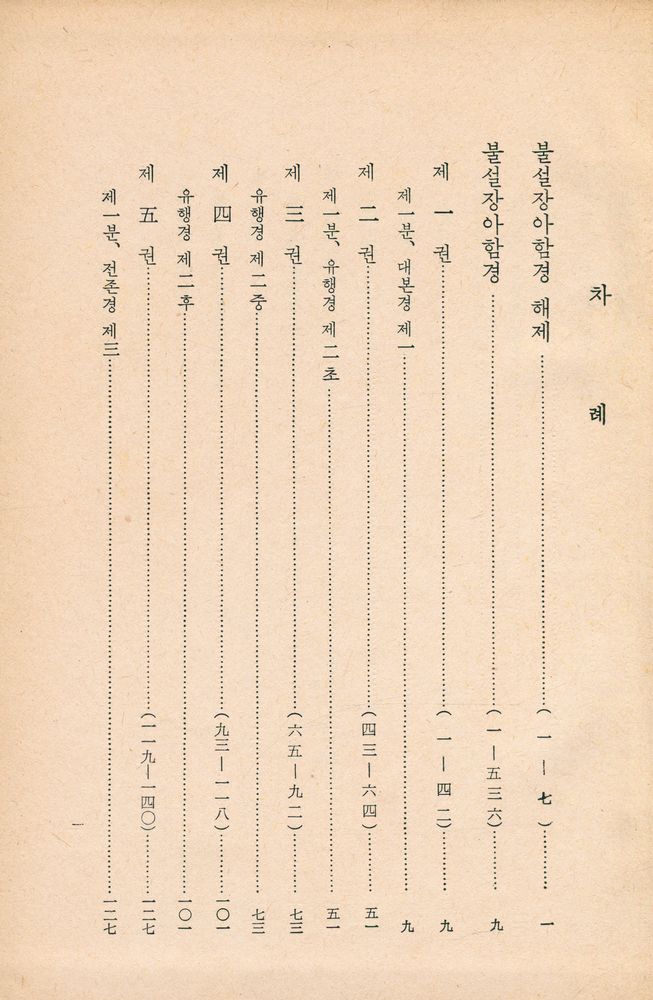 차 례
불설장아함경 해제……(一—七)……一
불설장아함경……(一—五三六)……九
제 一 권……(一—四二)……九
제一분、대본경 제一……九
제 二 권……(四三—六四)……五一
제一분、유행경 제二초……五一
제 三 권……(六五—九二)……七三
유행경 제二중……七三
제 四 권……(九三—一一八)……一〇一
유행경 제二후……一〇一
제 五 권……(一一九—一四〇)……一二七
제一분、전존경 제三……一二七
一